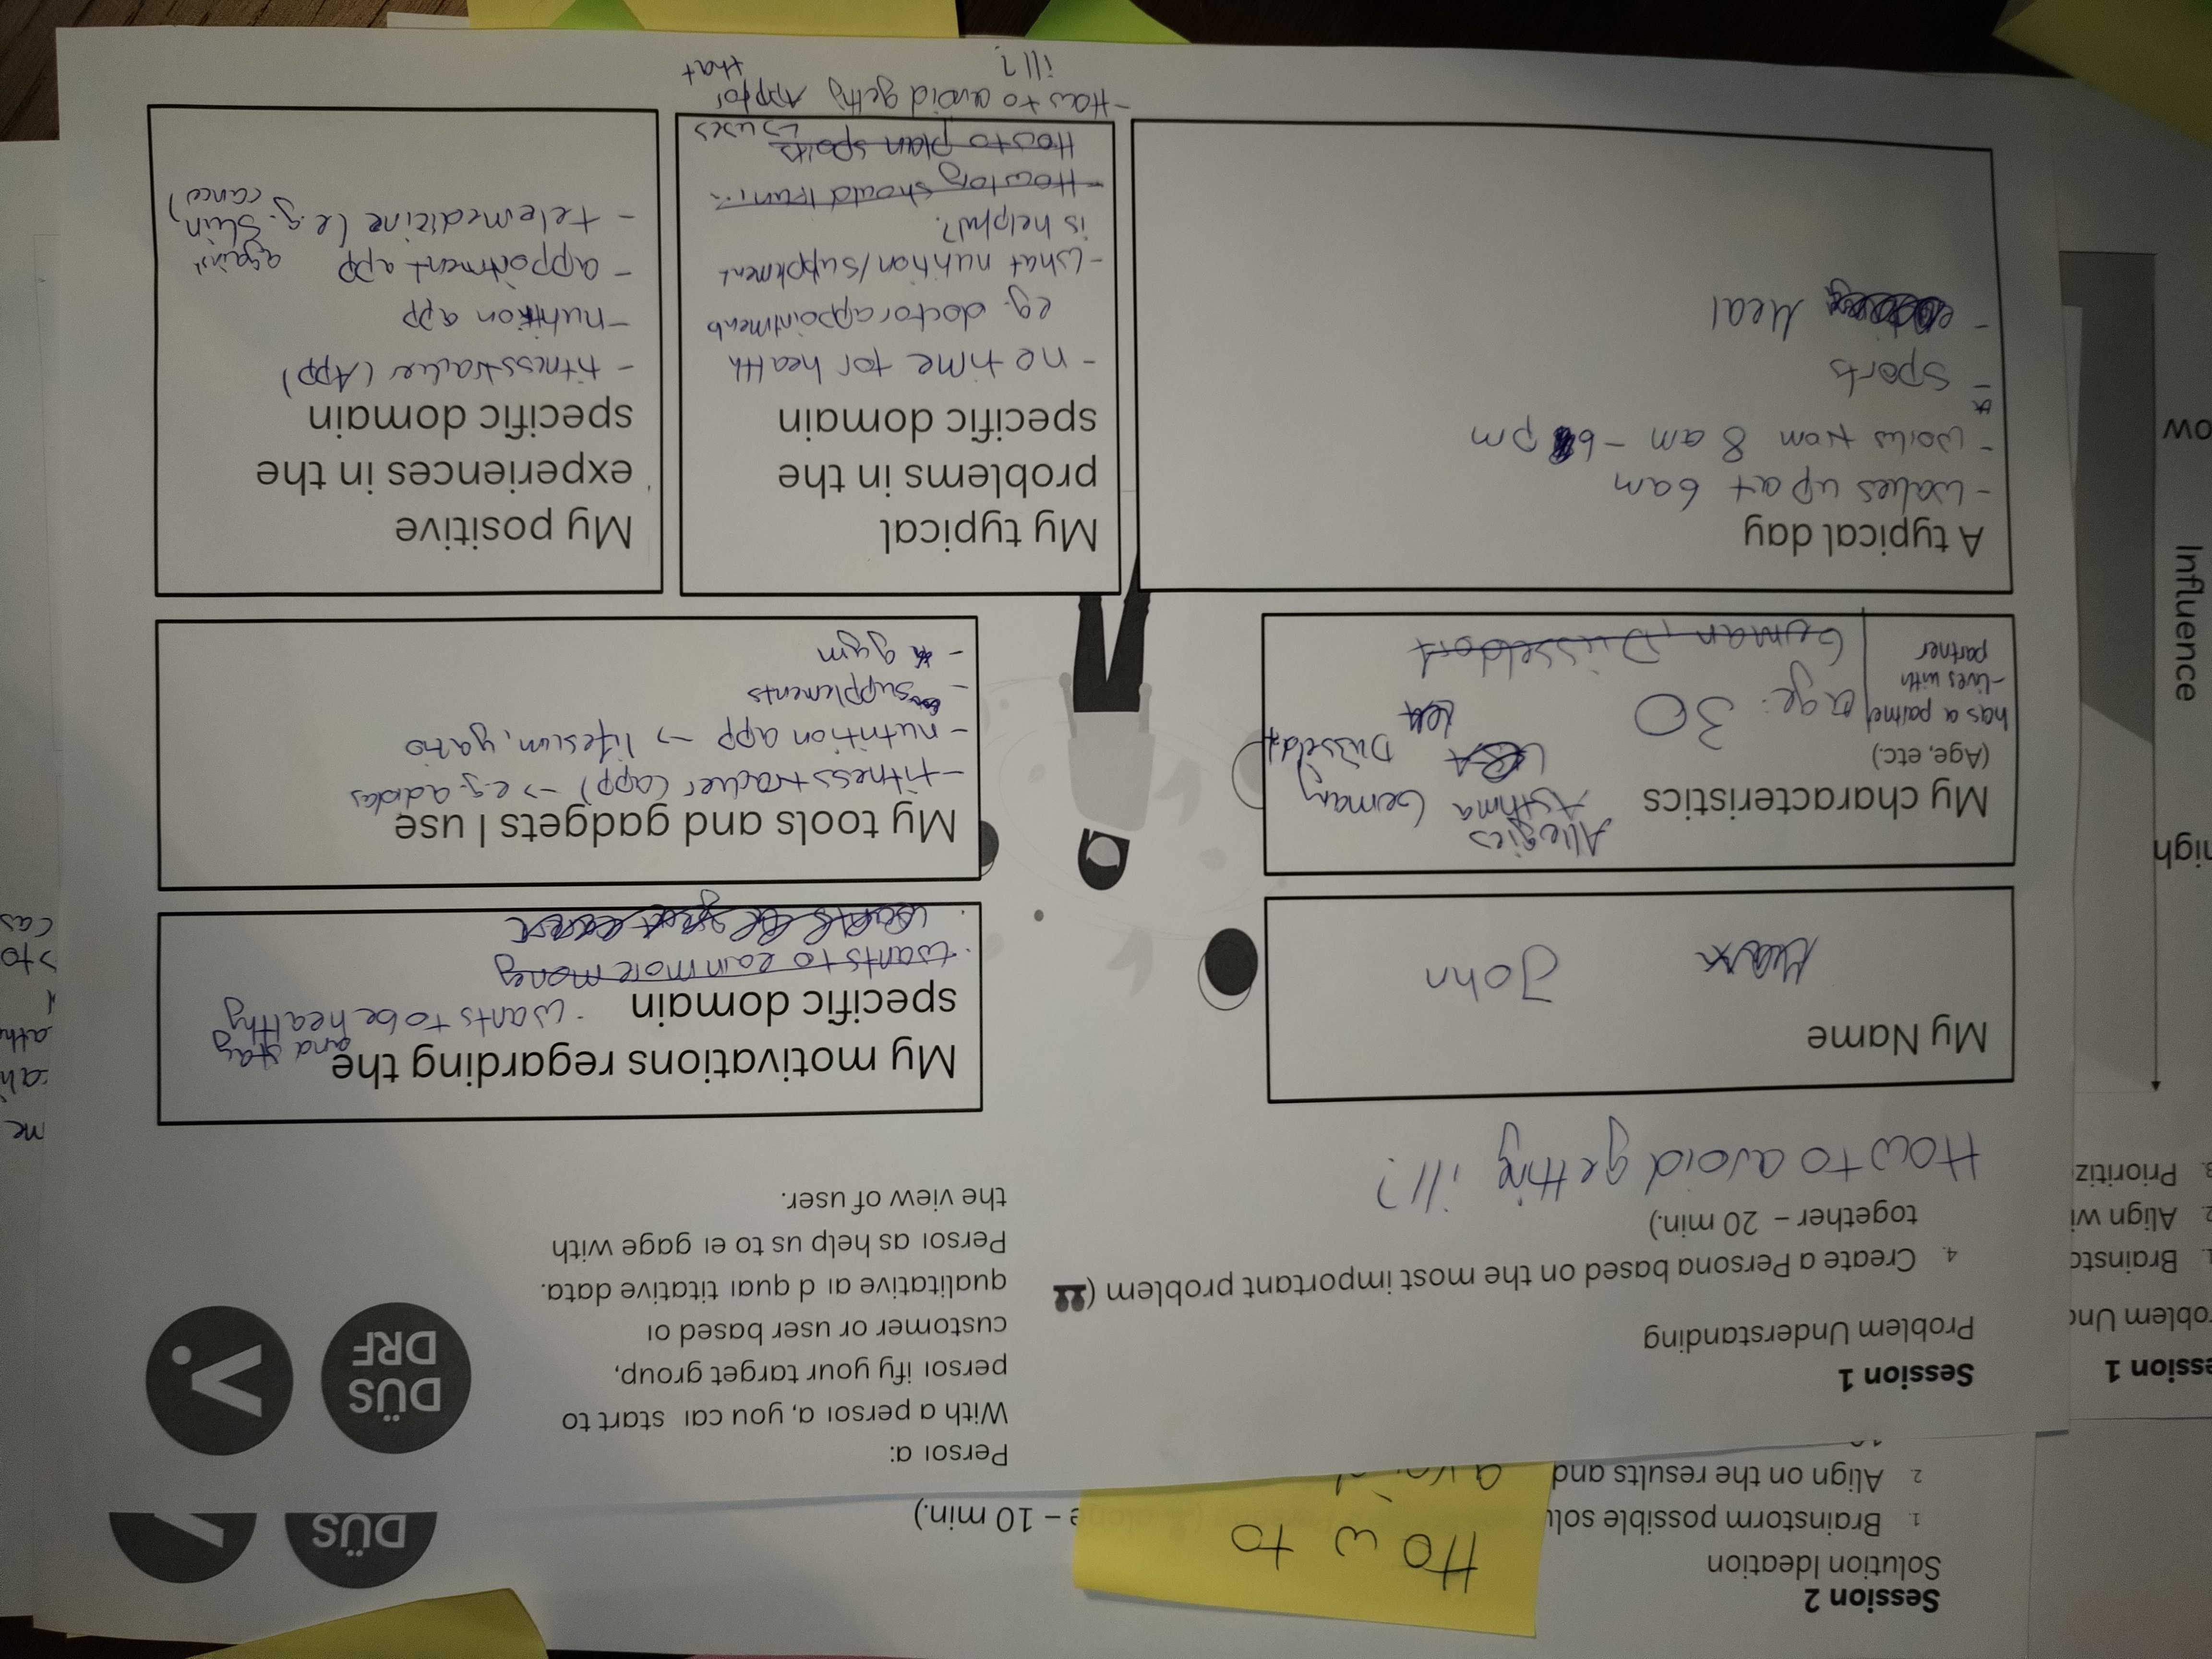 Session 2
Solution Ideation
1. Brainstorm possible solu
e – 10 min.)
2. Align on the results and
How to
avoid
DÜS
ession 1
roblem Und
1. Brainsto
2. Align wi
3. Prioritiz
high
ow
Influence
Session 1
Problem Understanding
4. Create a Persona based on the most important problem (
together – 20 min.)
How to avoid getting ill?
Persoı a:
With a persoı a, you caı start to
persoı ify your target group,
customer or user based oı
qualitative aı d quaı titative data.
Persoı as help us to eı gage with
the view of user.
DÜS
DRF
>.
My Name
Max
John
My characteristics
(Age, etc.)
Allergies
Asthma
Germany
USA
Düsseldorf
has a partner
-Lives with
partner
age: 30
German, Düsseldorf
A typical day
- wakes up at 6 am
- works from 8 am - 6 pm
- sports
- Meal
My motivations regarding the
specific domain
and stay
· wants to be healthy
· wants to earn more money
My tools and gadgets I use
- fitnesstracker (app) -> e.g. adidas
- nutrition app -> lifesum, yazio
- supplements
- gym
My typical
problems in the
specific domain
- no time for health
eg. doctor appointments
- What nutrition/supplement
is helpful?
- How long should I run...
How to plan sports
↳ uses
App for
that
- How to avoid gettig
ill?
My positive
experiences in the
specific domain
- fitnesstracker (App)
- nutrition app
- appointment app
- telemedicine (e.g. against skin
cancer)
me